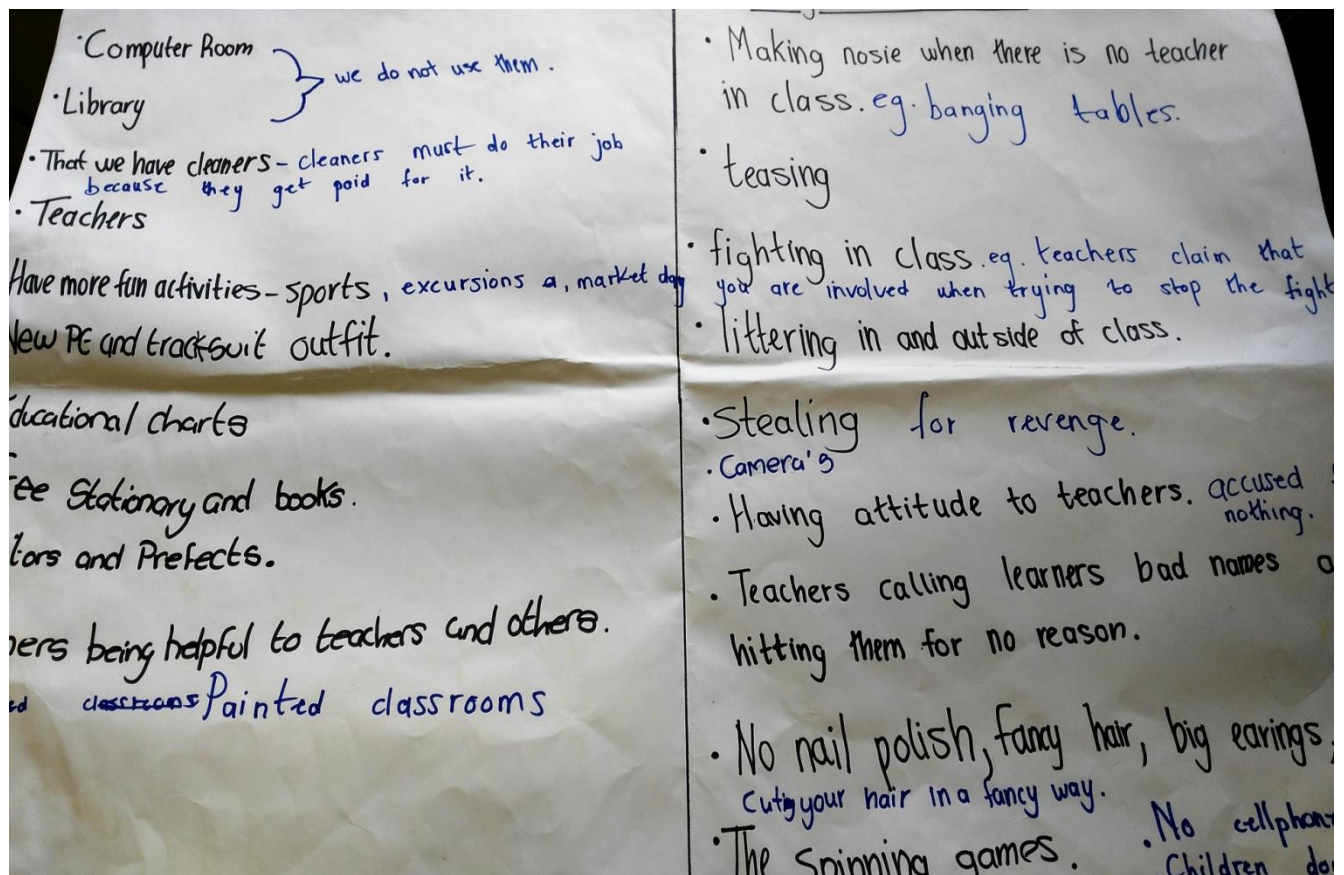 Computer Room
we do not use them.
Library
That we have cleaners - cleaners must do their job
because they get paid for it.
Teachers
Have more fun activities - sports, excursions a, market day
New PE and tracksuit outfit.
Educational charts
Stationary and books.
and Prefects.
being helpful to teachers and others.
Painted classrooms
Making nosie when there is no teacher
in class. eg. banging tables.
teasing
fighting in class. eg. teachers claim that
you are involved when trying to stop the fight
littering in and outside of class.
Stealing for revenge.
Camera's
Having attitude to teachers. accused
nothing.
Teachers calling learners bad names
hitting them for no reason.
No nail polish, fancy hair, big earings,
Cuting your hair in a fancy way.
The Spinning games.
No cellphon
Children